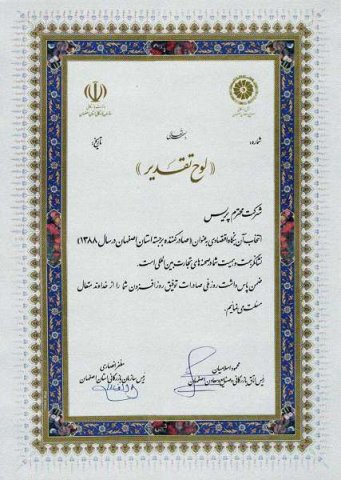 بسمه تعالی
شماره:
تاریخ:
« لوح تقدیر »
شرکت محترم پرس
انتخاب آن بنگاه اقتصادی به عنوان (صادرکننده برجسته استان اصفهان در سال ۱۳۸۸)
نشانگر جدیت و حضور شما در صحنه‌های تجارت بین المللی است.
ضمن پاس داشت روز ملی صادرات توفیق روزافزون شما را از خداوند متعال
مسئلت می‌نمایم.
محمود اسلامیان
رئیس اتاق بازرگانی و صنایع و معادن اصفهان
مظفر انصاری
رئیس سازمان بازرگانی استان اصفهان